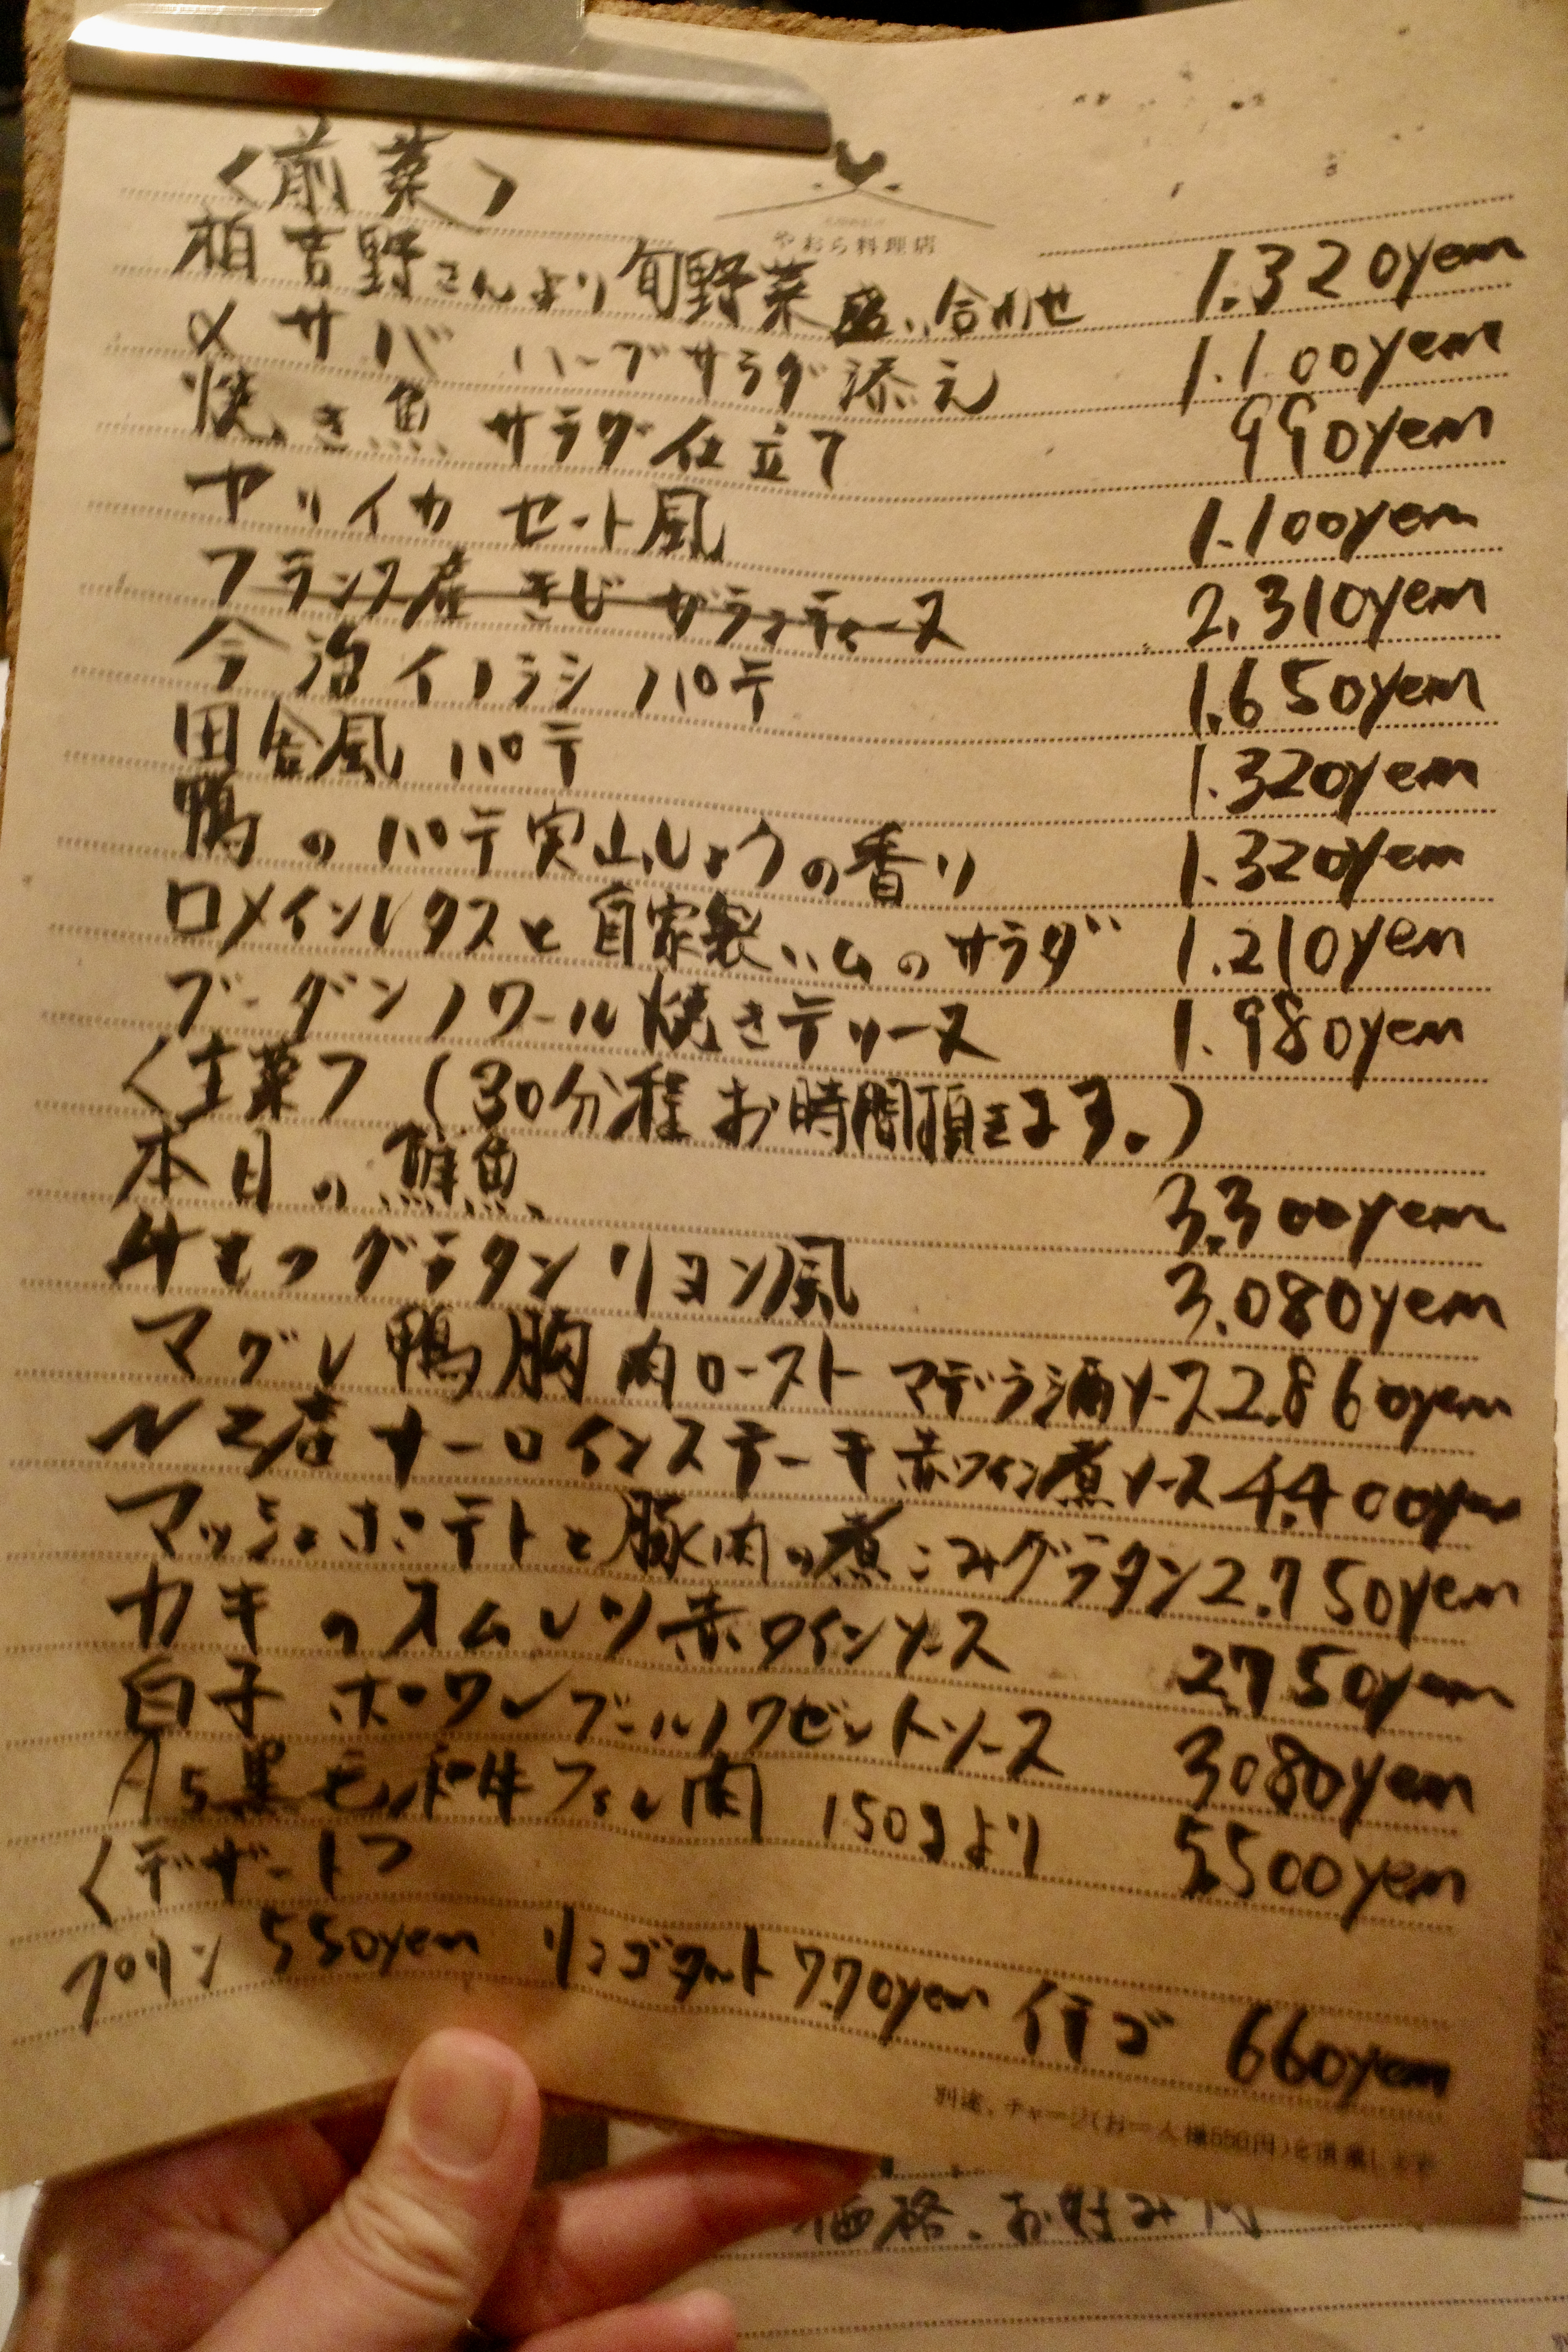 〈前菜〉
やおら料理店
柏 吉野さんより旬野菜盛り合わせ 1.320yen
〆サバ ハーブサラダ添え 1.100yen
焼き魚 サラダ仕立て 990yen
ヤリイカ セート風 1.100yen
フランス産 きじ ガランティーヌ 2.310yen
今治イノシシ パテ 1.650yen
田舎風 パテ 1.320yen
鴨のパテ実山しょうの香り 1.320yen
ロメインレタスと自家製ハムのサラダ 1.210yen
ブーダンノワール焼きテリーヌ 1.980yen
〈主菜〉(30分程お時間頂きます。)
本日の鮮魚 3.300yen
牛もつグラタン リヨン風 3.080yen
マグレ鴨胸肉ロースト マデラ酒ソース 2.860yen
NZ産サーロインステーキ赤ワイン煮ソース 4.400yen
マッシュポテトと豚肉の煮こみグラタン 2.750yen
カキのオムレツ赤ワインソース 2.750yen
白子 ポワレブールノワゼットソース 3080yen
A5黒毛和牛フィレ肉 150gより 5.500yen
〈デザート〉
プリン 550yen リンゴタルト 770yen イチゴ 660yen
別途、チャージ(お一人様550円)を頂戴します
価格、お好み